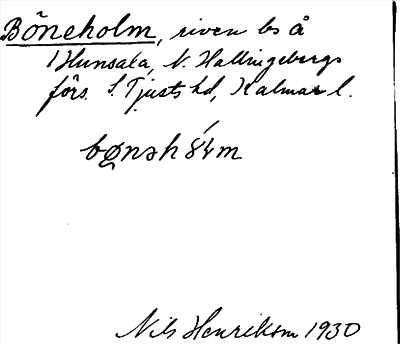 Böneholm, riven bs å
Hunsala, N. Hallingebergs
förs. S. Tjusts hd, Kalmar l.
Nils Henriksm 1930